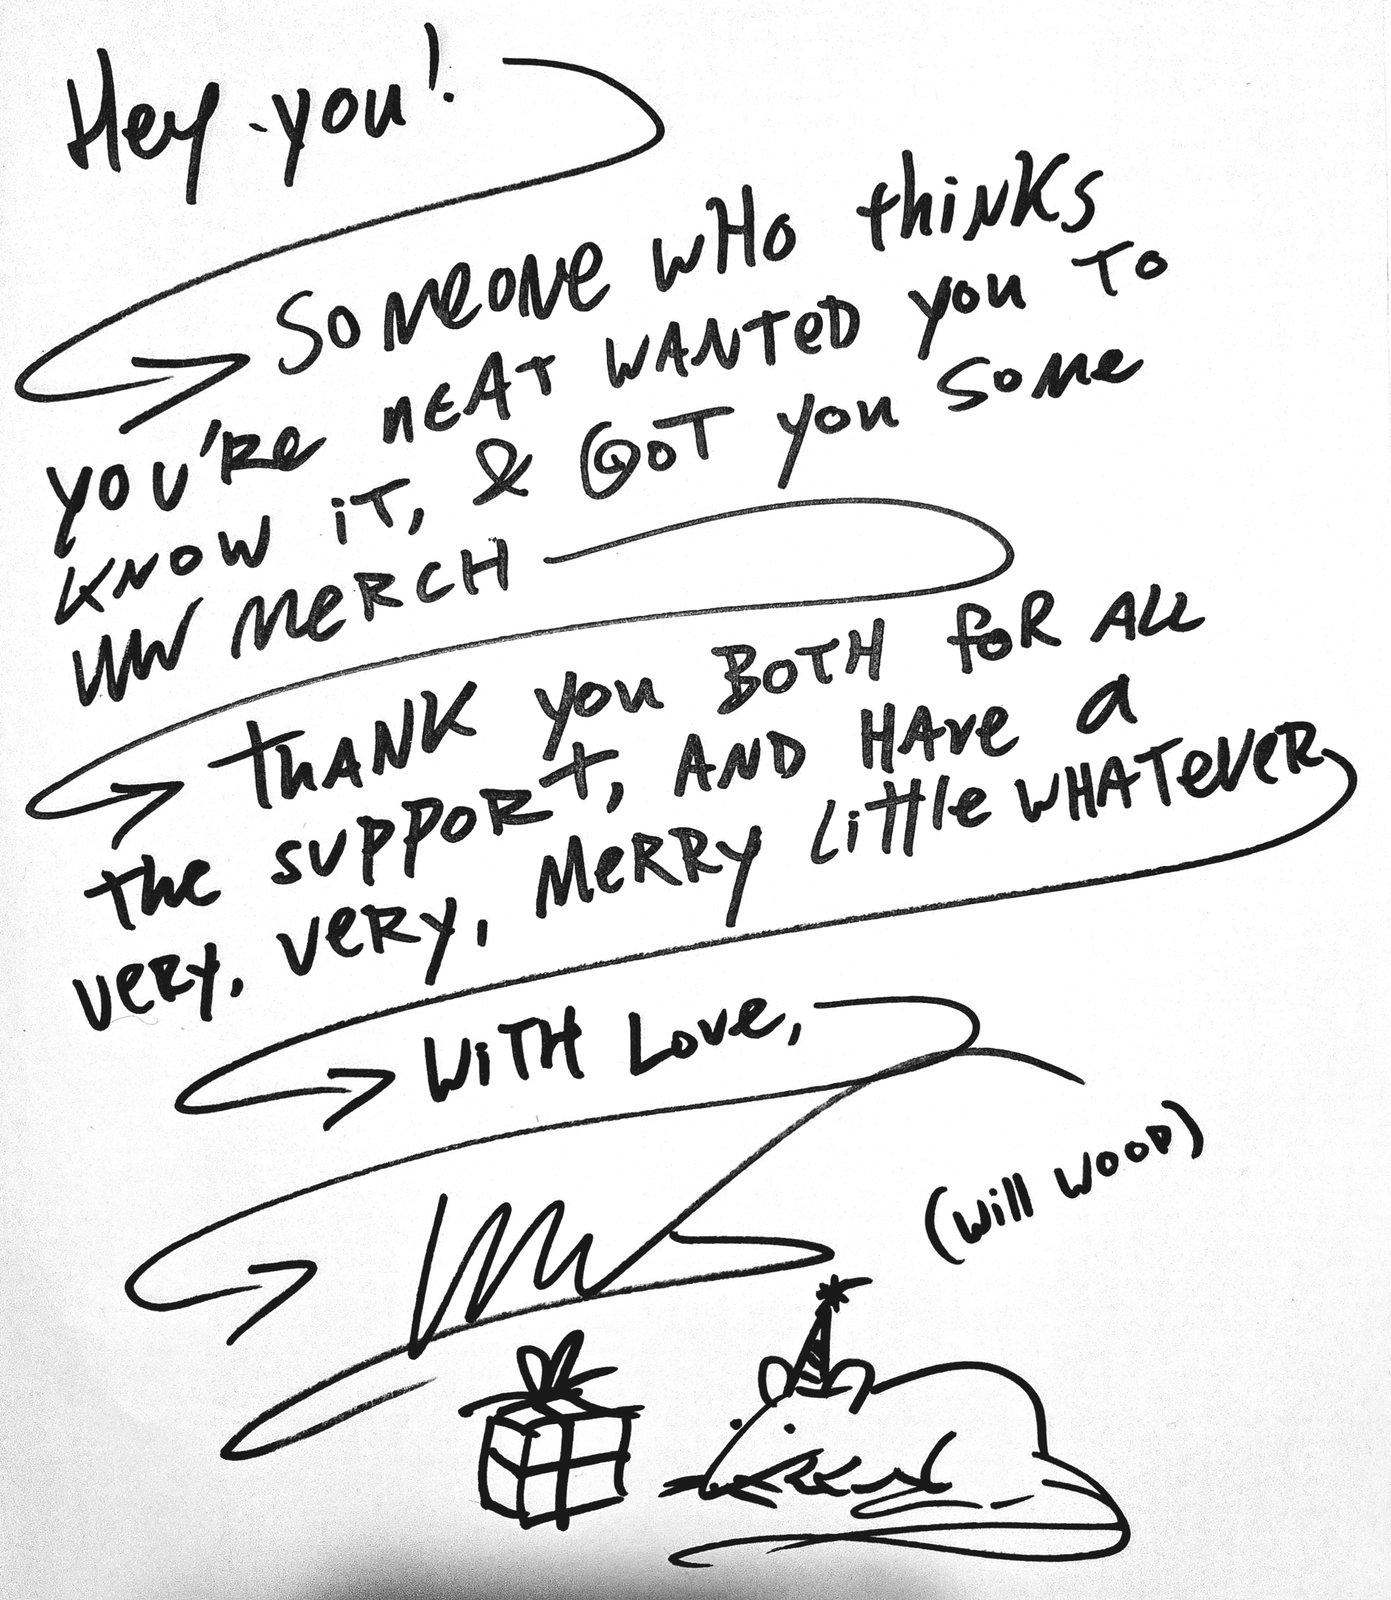 Hey you!
SOMEONE WHO thiNKS
YOU'Re NEAT WANTED YOU TO
KNOW iT, & GOT YOU SOMe
WW MERCH
THANK YOU BOTH FOR ALL
the SUPPORT, AND HAVE A
VERY, VERY, MERRY Little WHATEVER
WiTH LOVe,
WW
(Will WOOD)